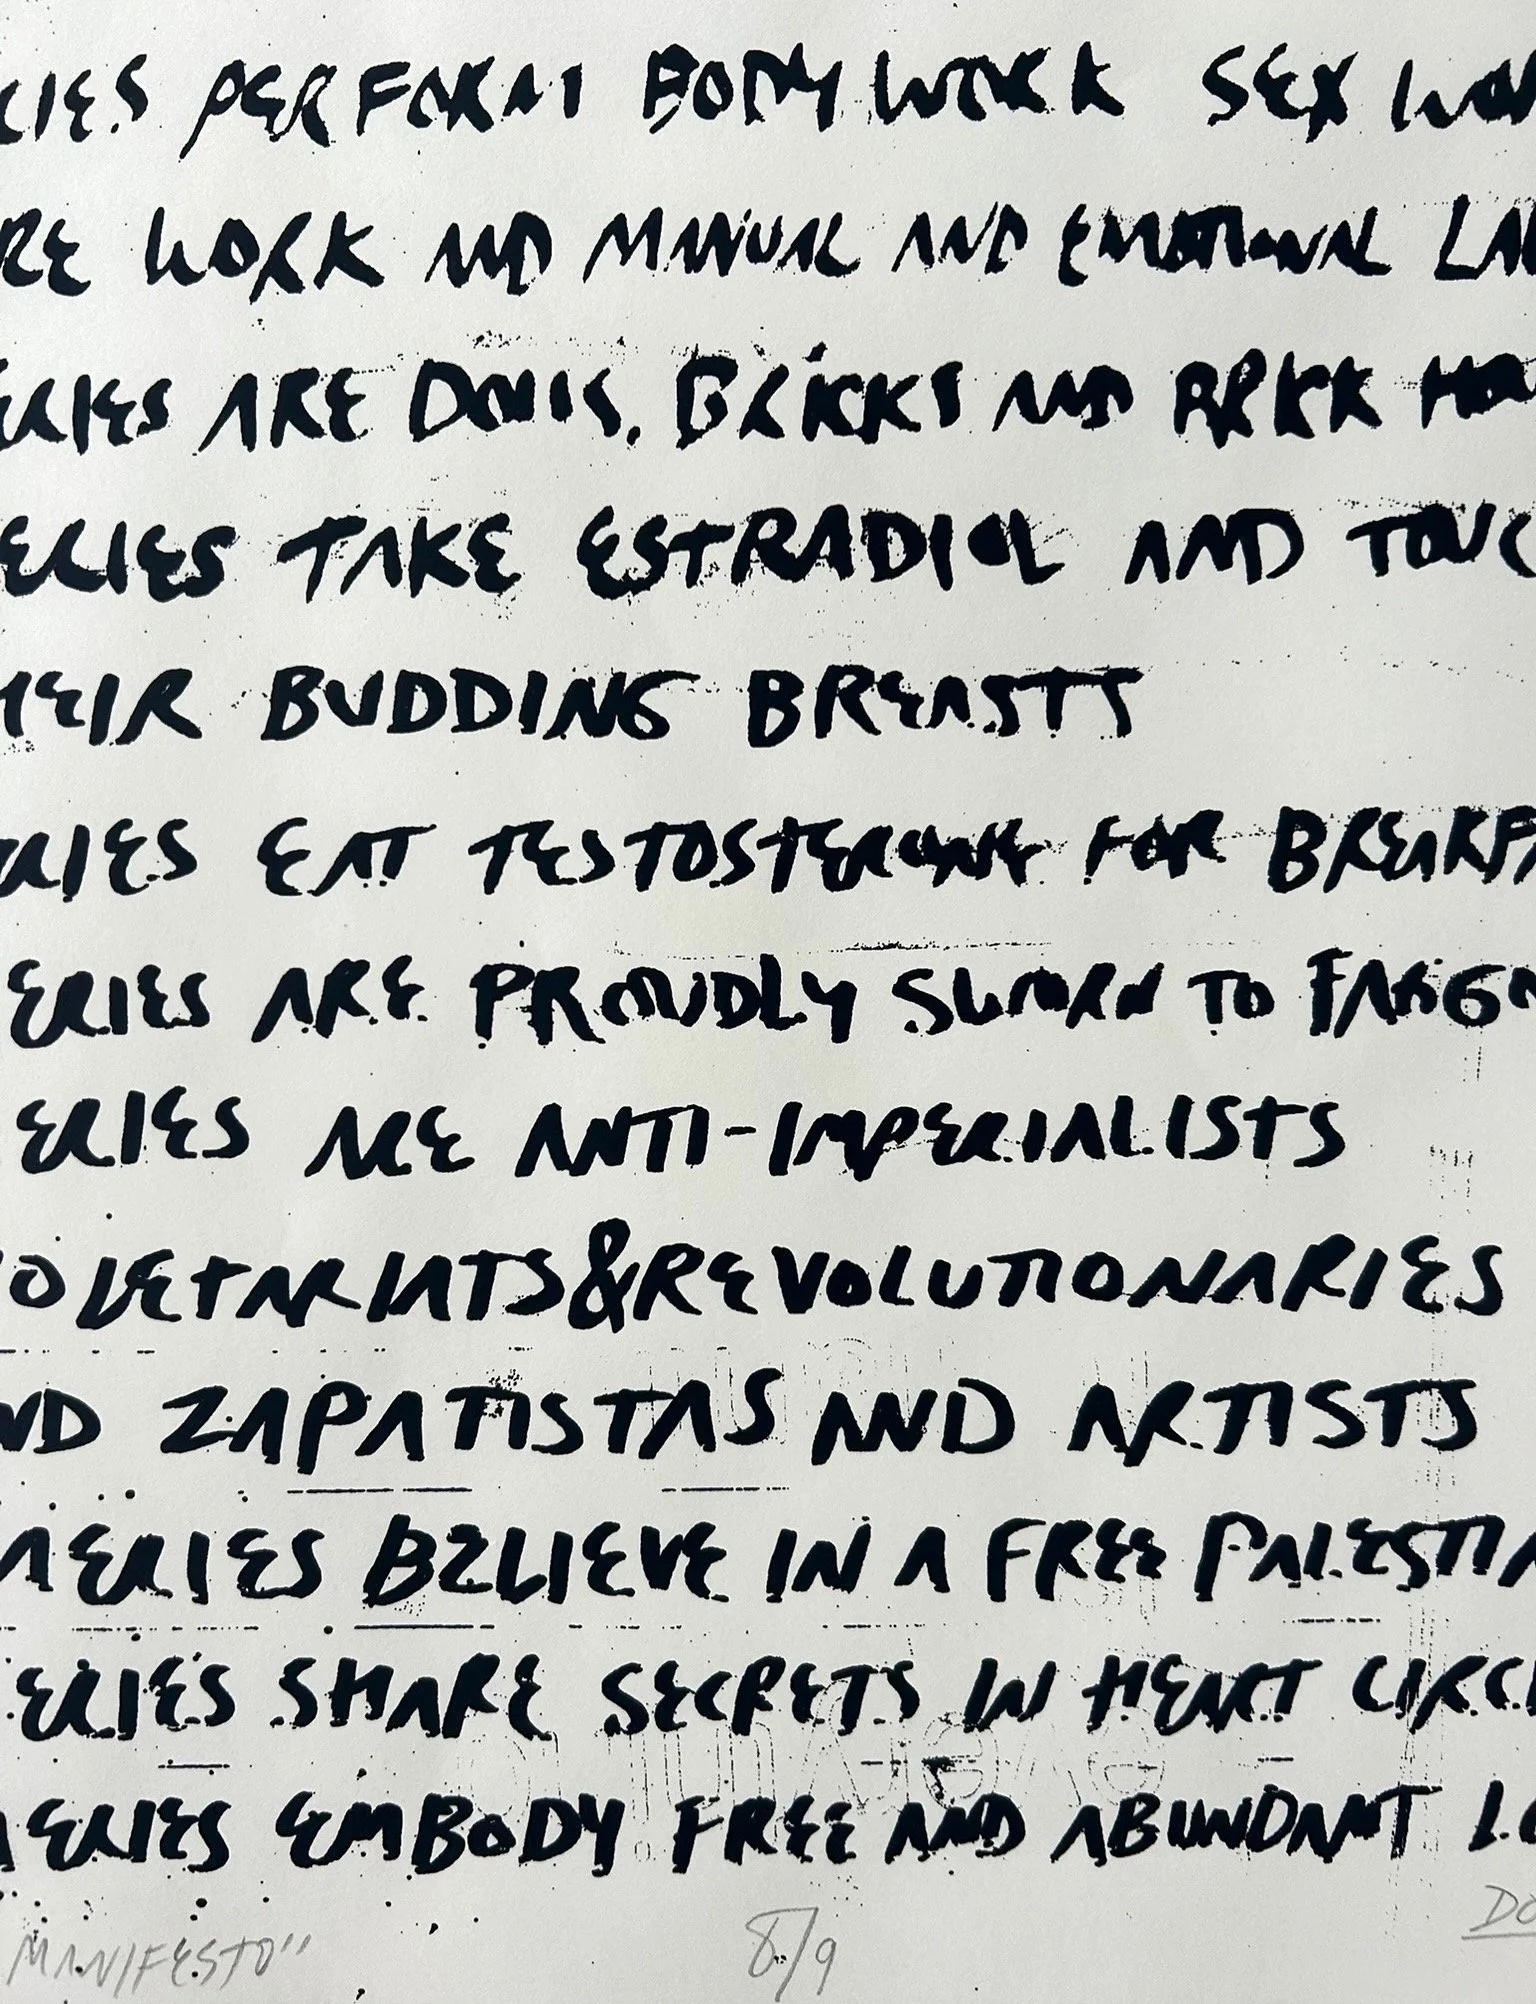 PERFORM BODY WORK SEX
WORK AND MANUAL AND EMOTIONAL
ARE DOLLS, BRICKS AND BRICK
TAKE ESTRADIOL AND
BUDDING BREASTS
EAT TESTOSTERONE FOR
ERIES ARE PROUDLY SWORN TO
ERIES ARE ANTI-IMPERIALISTS
OLETARIATS&REVOLUTIONARIES
ND ZAPATISTAS AND ARTISTS
AERIES BELIEVE IN A FREE
ERIES SHARE SECRETS IN HEART
AERIES EMBODY FREE AND ABUNDANT
MANIFESTO" 8/9